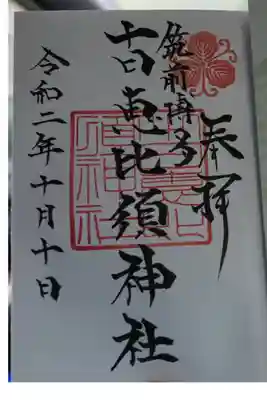 奉拝
筑前博多
十日恵比須神社
令和二年十月十日